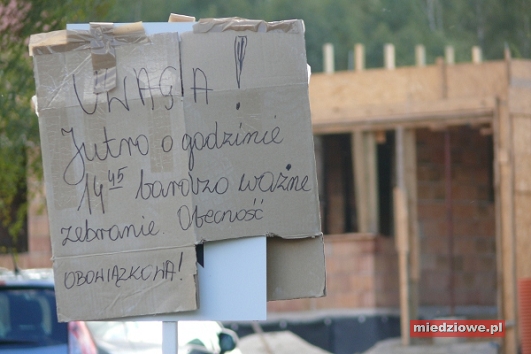 UWAGA!
Jutro o godzinie
14 45 bardzo ważne
zebranie. Obecność
OBOWIĄZKOWA!
miedziowe.pl